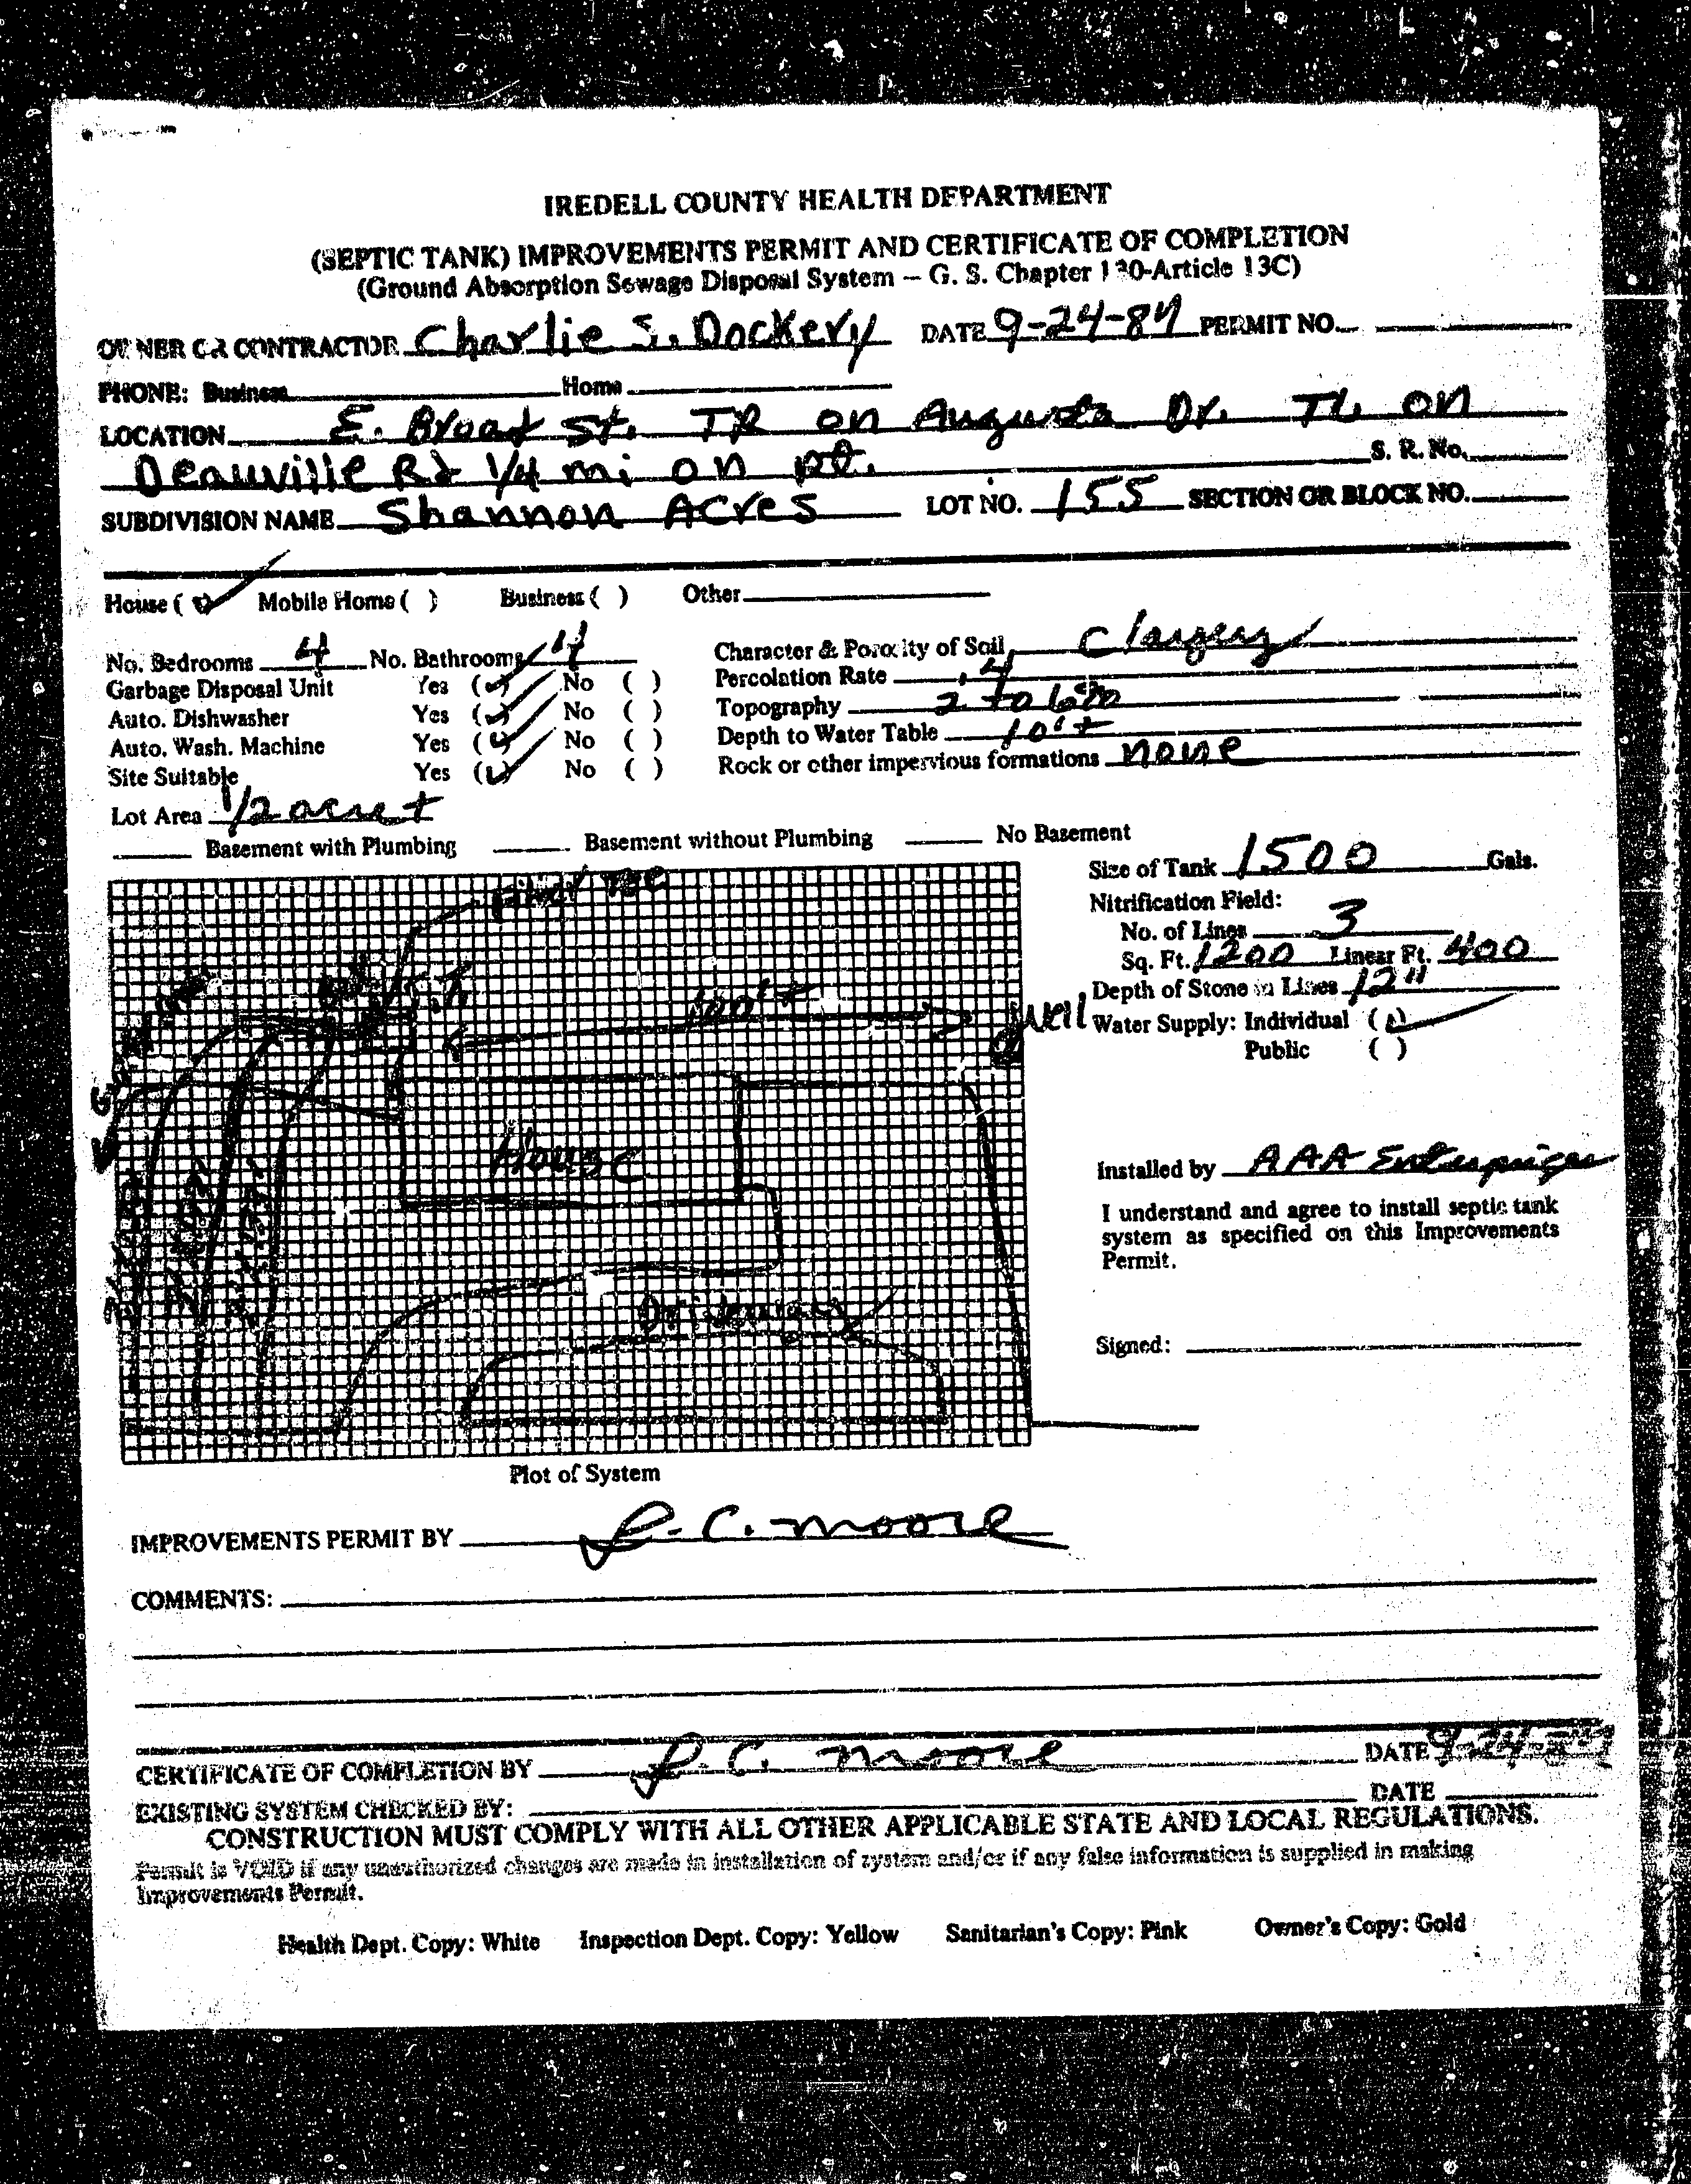 IREDELL COUNTY HEALTH DEPARTMENT
(SEPTIC TANK) IMPROVEMENTS PERMIT AND CERTIFICATE OF COMPLETION
(Ground Absorption Sewage Disposal System — G. S. Chapter 130-Article 13C)
OWNER OR CONTRACTOR Charlie S. Dockery DATE 9-24-84 PERMIT NO.
PHONE: Business Home
LOCATION E. Broad St. TR on Augusta Dr. TL on
Deauville Rd 1/4 mi on rt. S. R. No.
SUBDIVISION NAME Shannon Acres LOT NO. 155 SECTION OR BLOCK NO.
House ( ) Mobile Home ( ) Business ( ) Other
No. Bedrooms 4 No. Bathrooms 4 Character & Porosity of Soil
Garbage Disposal Unit Yes (✓) No ( ) Percolation Rate .4
Auto. Dishwasher Yes (✓) No ( ) Topography 2 to 6%
Auto. Wash. Machine Yes (✓) No ( ) Depth to Water Table 10'+
Site Suitable Yes (✓) No ( ) Rock or other impervious formations none
Lot Area 1/2 acre +
Basement with Plumbing Basement without Plumbing No Basement
Size of Tank 1500 Gals.
Nitrification Field:
No. of Lines 3
Sq. Ft. 1200 Linear Ft. 400
Depth of Stone in Lines 12"
Water Supply: Individual (✓)
Public ( )
100'+
Well
House
Driveway
Installed by AAA Enterprises
I understand and agree to install septic tank
system as specified on this Improvements
Permit.
Signed:
Plot of System
IMPROVEMENTS PERMIT BY L. C. Moore
COMMENTS:
CERTIFICATE OF COMPLETION BY L. C. Moore DATE 9-24-84
EXISTING SYSTEM CHECKED BY: DATE
CONSTRUCTION MUST COMPLY WITH ALL OTHER APPLICABLE STATE AND LOCAL REGULATIONS.
Permit is VOID if any unauthorized changes are made in installation of system and/or if any false information is supplied in making
Improvements Permit.
Health Dept. Copy: White Inspection Dept. Copy: Yellow Sanitarian's Copy: Pink Owner's Copy: Gold